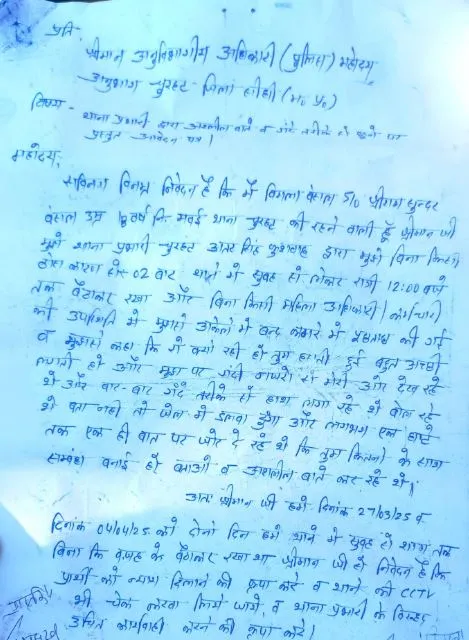 प्रति,
श्रीमान अनुविभागीय अधिकारी (पुलिस) महोदय
अनुभाग चुरहट जिला सीधी (म० प्र०)
विषय - थाना प्रभारी द्वारा अश्लील बाते व गंदे तरीके से छूने का
प्रस्तुत आवेदन पत्र।
महोदय,
सविनय विनम्र निवेदन है कि मैं S/O श्रीराम सुन्दर
उम्र 18 वर्ष कि मवई थाना चुरहट की रहने वाली हूँ श्रीमान जी
मुझे थाना प्रभारी चुरहट अतर सिंह कुशवाह द्वारा मुझे बिना किसी
ठोस कारण के 02 बार थाने में सुबह से लेकर रात्री 12:00 बजे
तक बैठाकर रखा और बिना किसी महिला अधिकारी / कर्मचारी
की उपस्थिति में मुझसे अकेले में बन्द कमरे में पूछताछ की गई
व मुझसे कहा कि रो क्यो रही हो तुम हसती हुई बहुत अच्छी
लगती हो और मुझ पर गंदी नजरो से मेरी ओर देख रहे
थे और बार-बार गंदे तरीके से हाथ लगा रहे थे बोल रहे
थे बता नही तो जेल में डलवा दुंगा और लगभग एक घण्टे
तक एक ही बात पर जोर दे रहे थे कि तुम कितनो के साथ
सम्बंध बनाई हो बताओ व अश्लील बाते कर रहे थे।
अतः श्रीमान जी हमे दिनांक 27/03/25 व
दिनांक 04/04/25 को दोनो दिन हमे थाने में सुबह से शाम तक
बिना कि वजह के बैठाकर रखा था श्रीमान जी से निवेदन है कि
प्रार्थी को न्याय दिलाने की कृपा करे व थाने की CCTV
भी चेक करवा लिये जाये, व थाना प्रभारी के विरुद्ध
उचित कार्यवाही करने की कृपा करे।